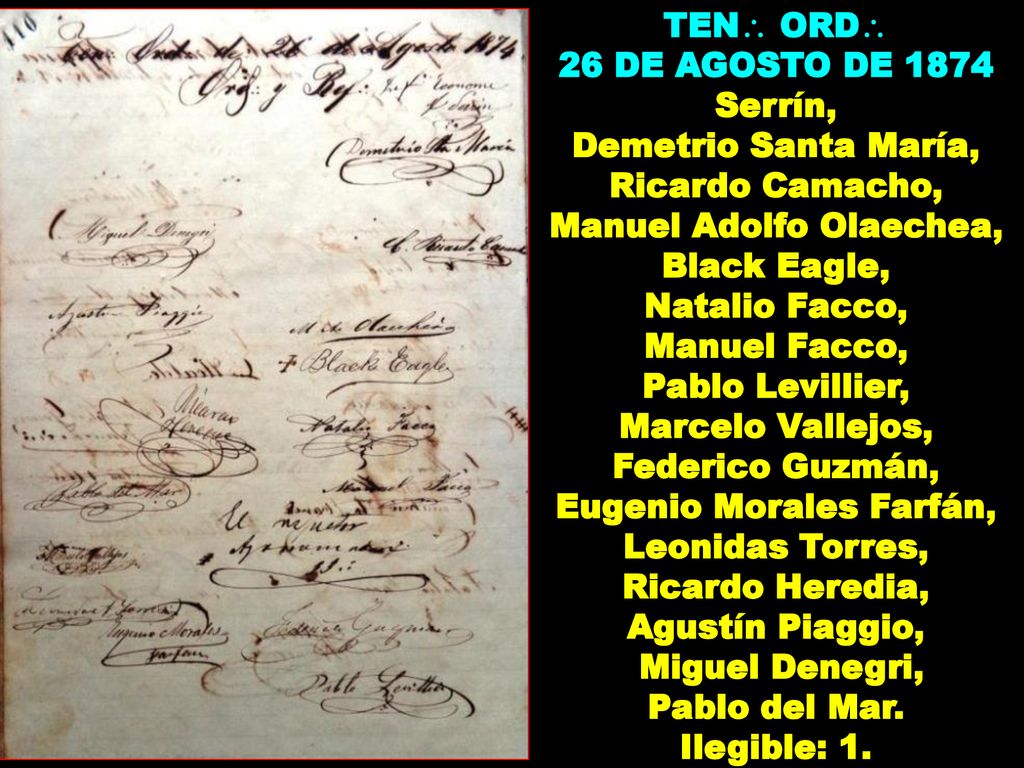 110
Ten∴ Ord∴ de 26 de Agosto 1874
Demetrio Sta Maria
Miguel Denegri
C. Ricardo
Agustin Piaggio
M. A. Olaechea
+ Black Eagle
Ricardo
Heredia
Natalio Facco
Pablo del Mar
Manuel Facco
El
Leonidas Torres
Eugenio Morales
Farfan
Federico Guzman
Pablo Levillier
TEN∴ ORD∴
26 DE AGOSTO DE 1874
Serrín,
Demetrio Santa María,
Ricardo Camacho,
Manuel Adolfo Olaechea,
Black Eagle,
Natalio Facco,
Manuel Facco,
Pablo Levillier,
Marcelo Vallejos,
Federico Guzmán,
Eugenio Morales Farfán,
Leonidas Torres,
Ricardo Heredia,
Agustín Piaggio,
Miguel Denegri,
Pablo del Mar.
Ilegible: 1.